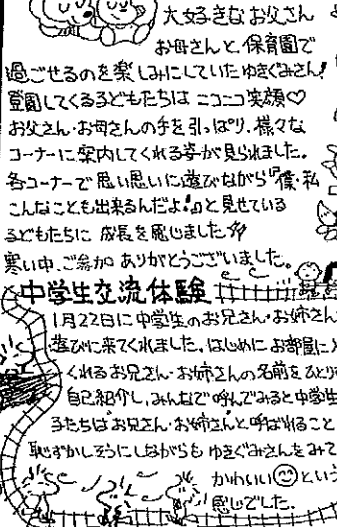 大好きなお父さん
お母さんと、保育園で
過ごせるのを楽しみにしていたゆきぐみさん!
登園してくる子どもたちは ニコニコ笑顔♡
お父さん・お母さんの手を引っぱり、様々な
コーナーに案内してくれる姿が見られました。
各コーナーで思い思いに遊びながら『僕・私
こんなことも出来るんだよ!』と見せている
子どもたちに 成長を感じました
寒い中、ご参加 ありがとうございました。
中学生交流体験
1月22日に中学生のお兄さん・お姉さん
遊びに来てくれました。はじめに お部屋に
くれるお兄さん・お姉さんの名前をひとり
自己紹介し、みんなで呼んでみると中学生
子たちは お兄さん・お姉さんと呼ばれること
恥ずかしそうにしながらも ゆきぐみさんをみて
かわいい😊とい
感じでした。